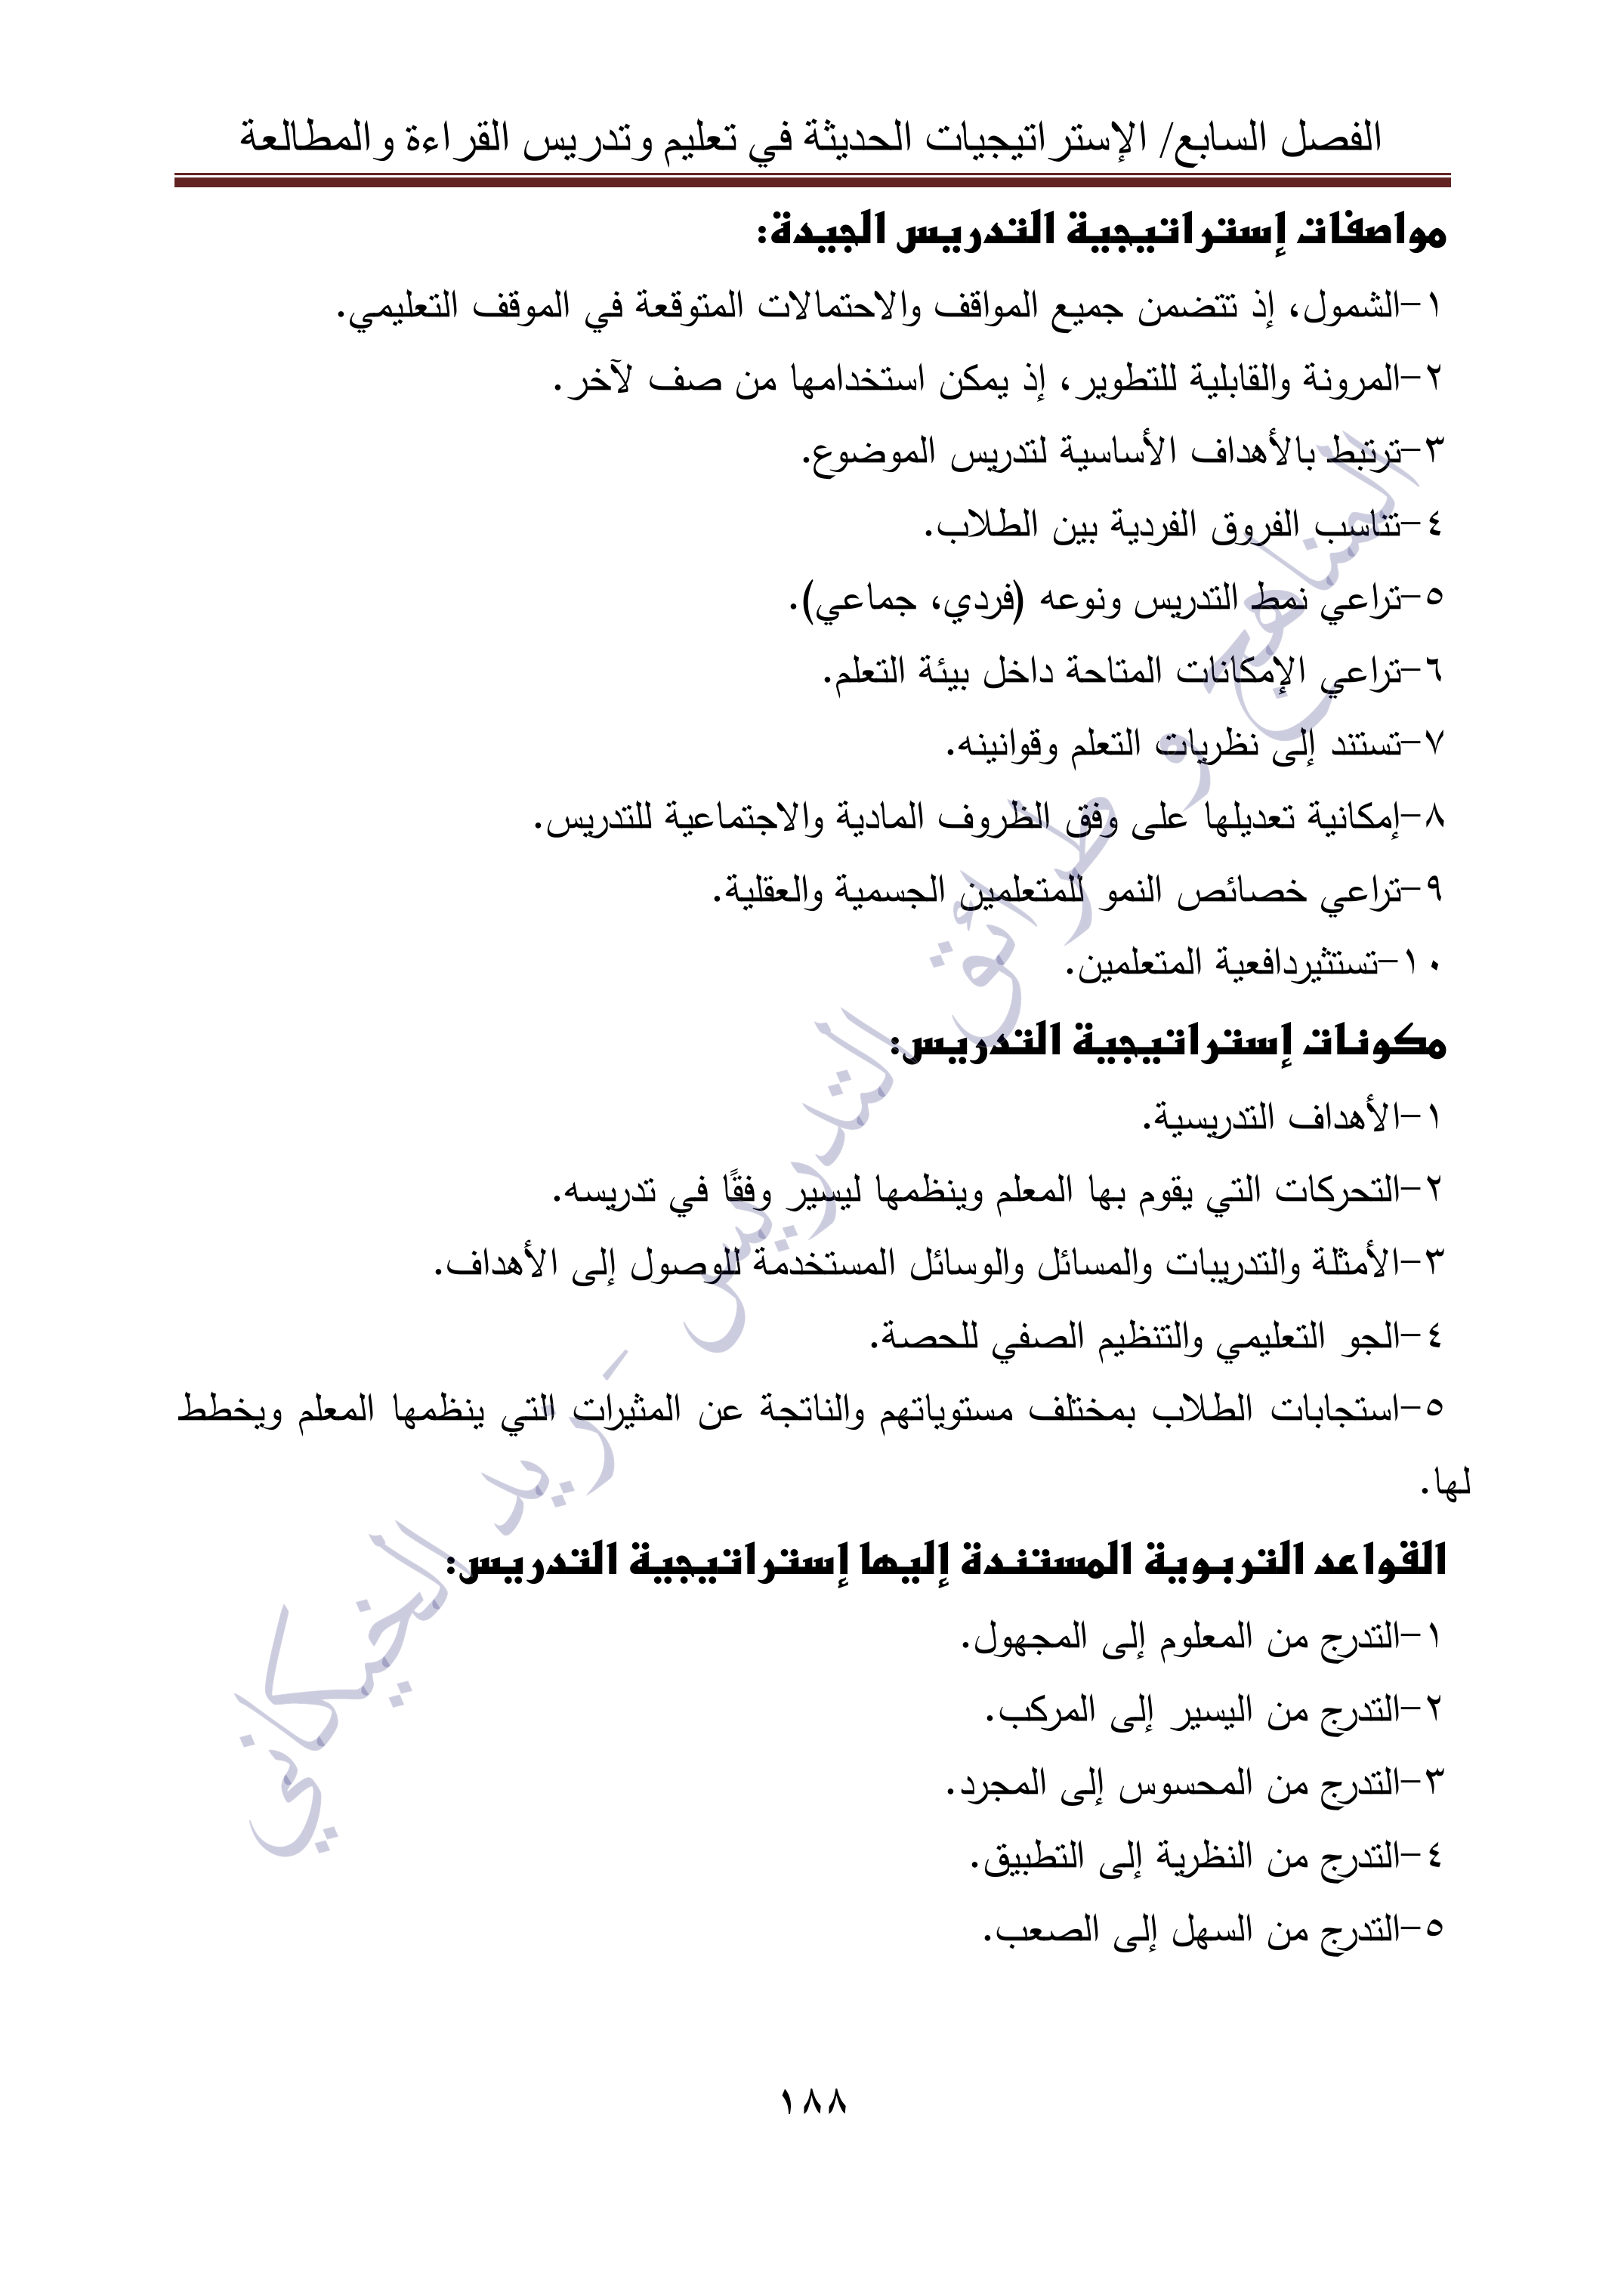 الفصل السابع/ الإستراتيجيات الحديثة في تعليم وتدريس القراءة والمطالعة
مواصفات إستراتيجية التدريس الجيدة:
١-الشمول، إذ تتضمن جميع المواقف والاحتمالات المتوقعة في الموقف التعليمي.
٢-المرونة والقابلية للتطوير، إذ يمكن استخدامها من صف لآخر.
٣-ترتبط بالأهداف الأساسية لتدريس الموضوع.
٤-تناسب الفروق الفردية بين الطلاب.
٥-تراعي نمط التدريس ونوعه (فردي، جماعي).
٦-تراعي الإمكانات المتاحة داخل بيئة التعلم.
٧-تستند إلى نظريات التعلم وقوانينه.
٨-إمكانية تعديلها على وفق الظروف المادية والاجتماعية للتدريس.
٩-تراعي خصائص النمو للمتعلمين الجسمية والعقلية.
١٠-تستثيردافعية المتعلمين.
مكونات إستراتيجية التدريس:
١-الأهداف التدريسية.
٢-التحركات التي يقوم بها المعلم وينظمها ليسير وفقًا في تدريسه.
٣-الأمثلة والتدريبات والمسائل والوسائل المستخدمة للوصول إلى الأهداف.
٤-الجو التعليمي والتنظيم الصفي للحصة.
٥-استجابات الطلاب بمختلف مستوياتهم والناتجة عن المثيرات التي ينظمها المعلم ويخطط
لها.
القواعد التربوية المستندة إليها إستراتيجية التدريس:
١-التدرج من المعلوم إلى المجهول.
٢-التدرج من اليسير إلى المركب.
٣-التدرج من المحسوس إلى المجرد.
٤-التدرج من النظرية إلى التطبيق.
٥-التدرج من السهل إلى الصعب.
١٨٨
المناهج و طرائق التدريس - زيد الخيكاني